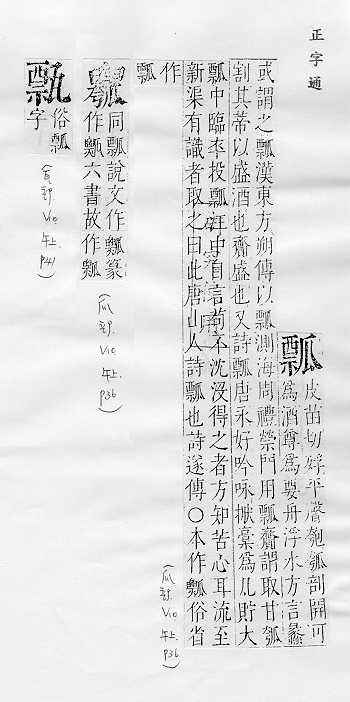 正字通
瓢
皮苗切好平聲匏瓠剖開可
為酒尊為要舟浮水方言蠡
或謂之瓢漢東方朔傳以瓢測海周禮禜門用瓢齎謂取甘瓠
割其蒂以盛酒也齎盛也又詩瓢唐永好吟咏撚稾為丸貯大
瓢中臨卒投瓢江中自言苟不沈沒得之者方知苦心耳流至
新渠有識者取之曰此唐山人詩瓢也詩遂傳○本作瓢俗省
作
瓢
(瓜部. V10 午上. P36)
同瓢說文作瓢篆
作瓢六書故作瓢
(瓜部. V10 午上. P36)
俗瓢
字
V10 午上. P41)